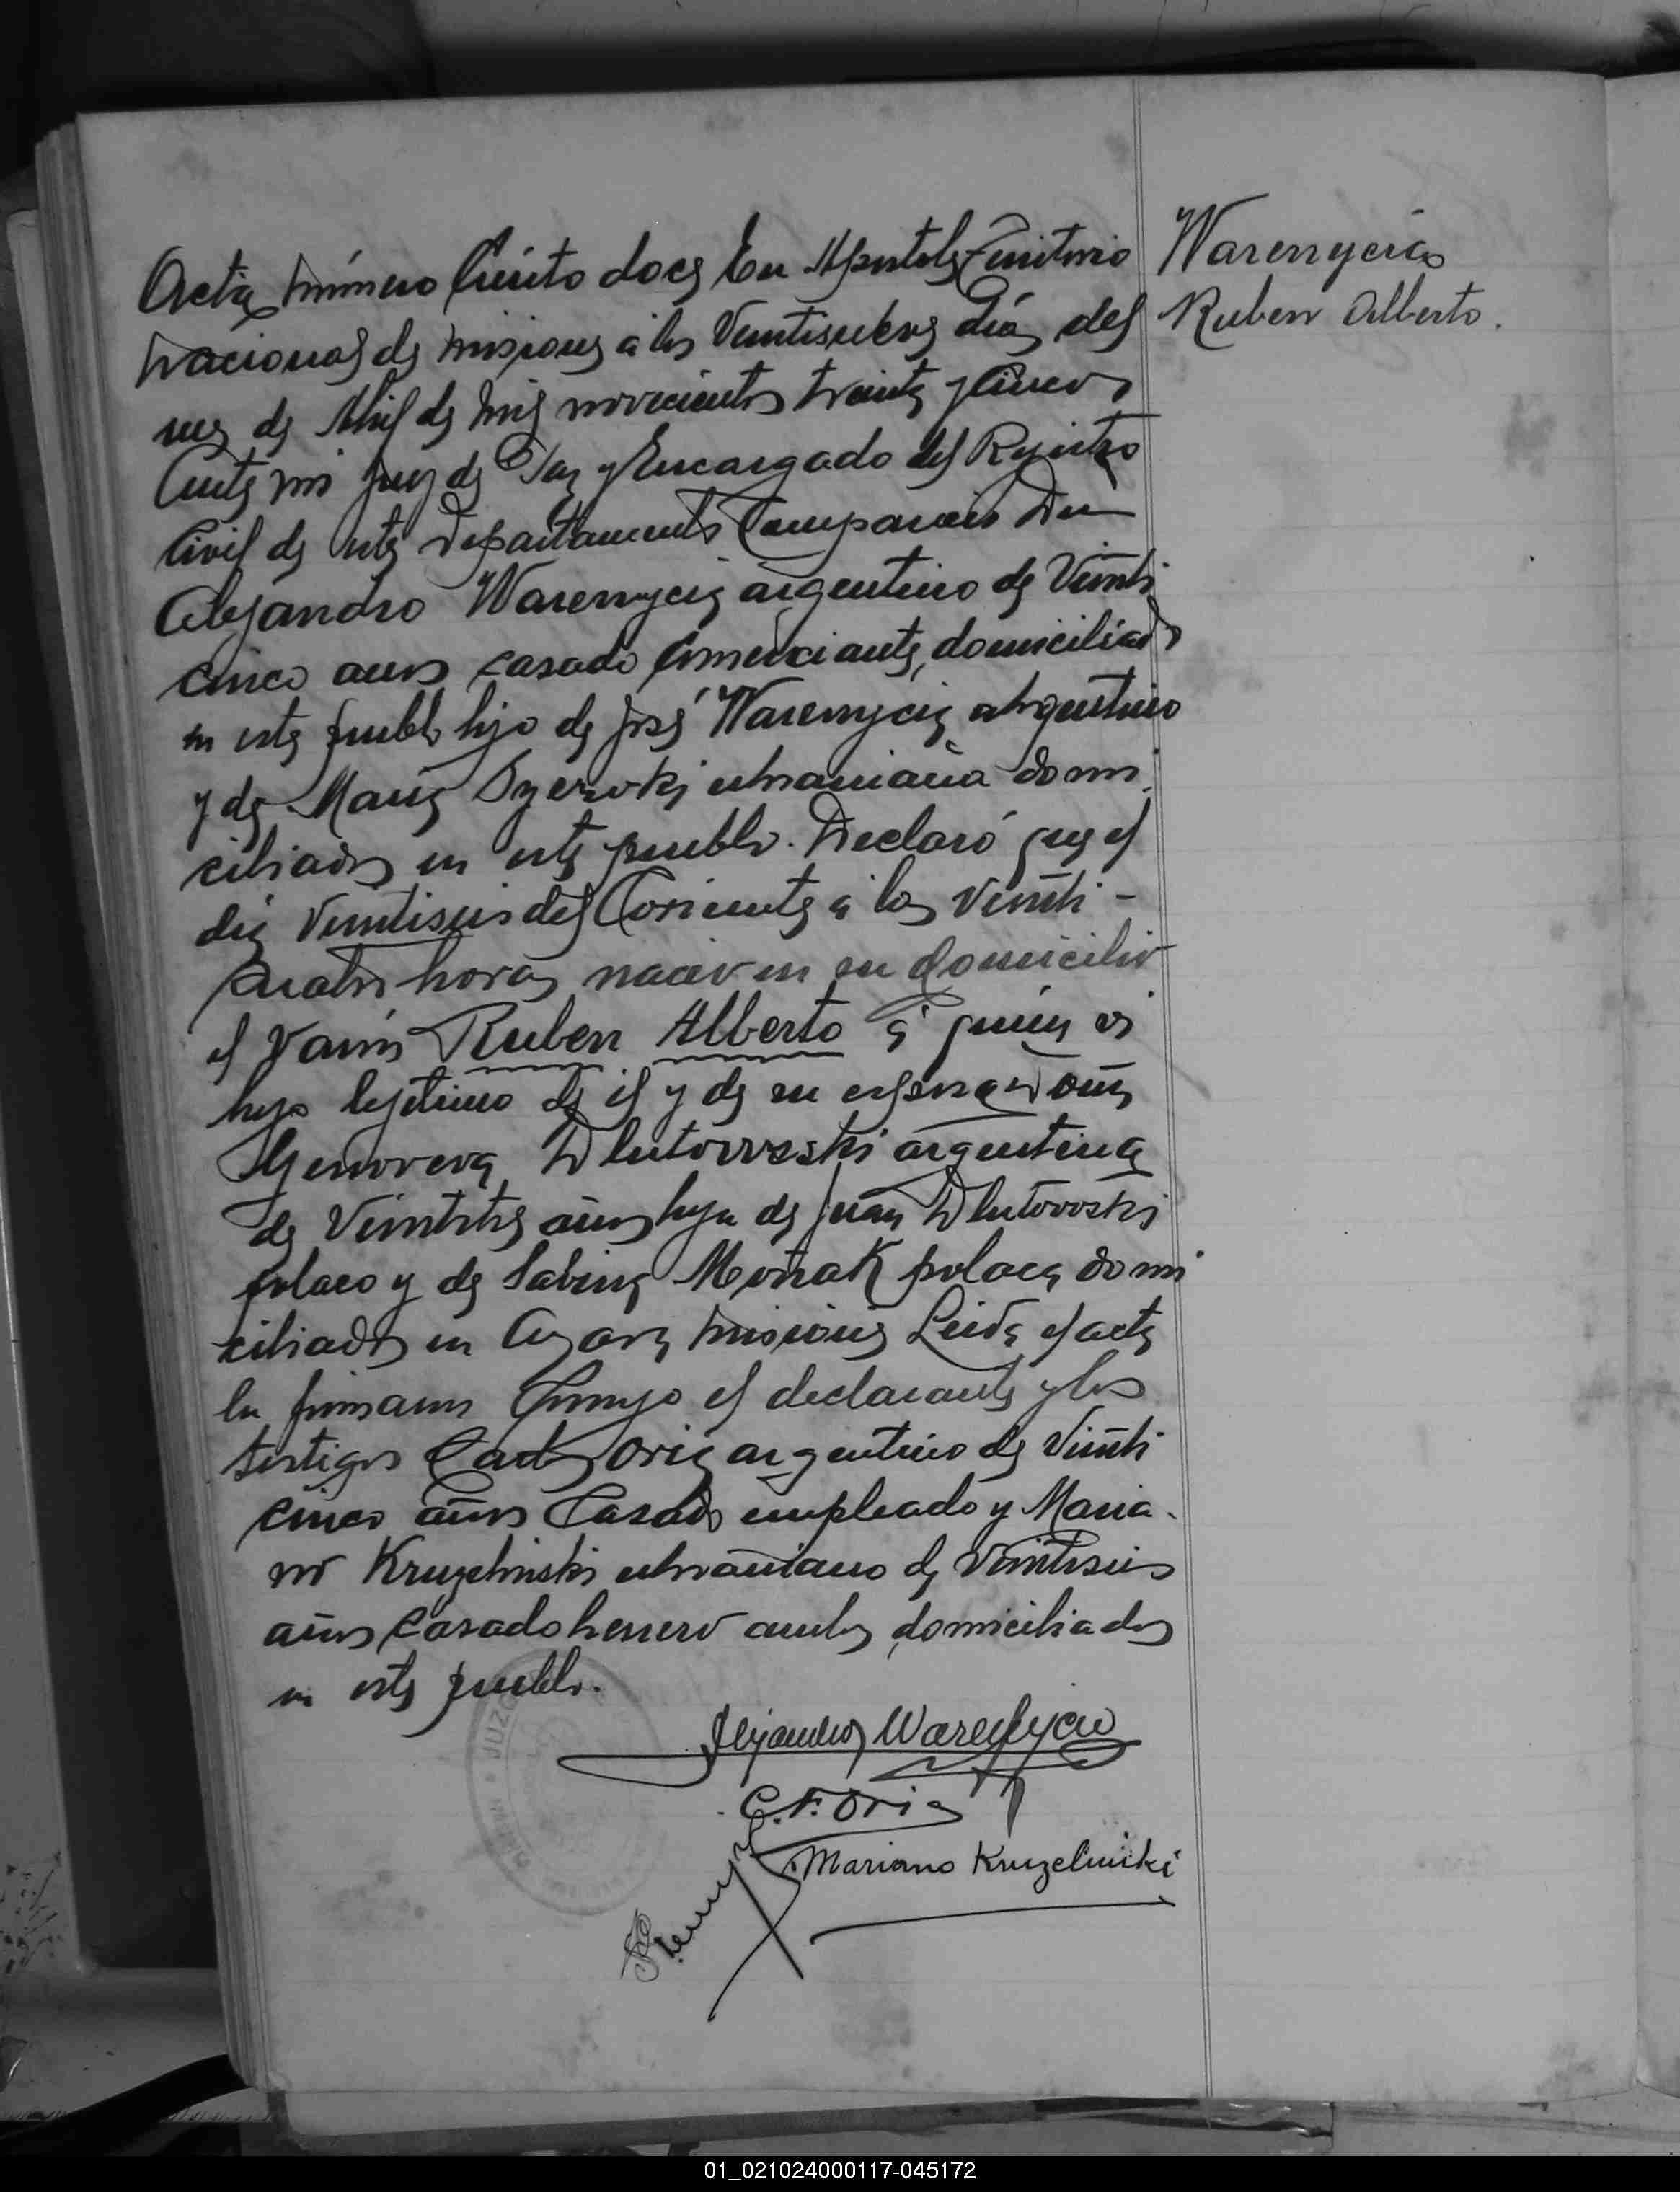 Acta número Ciento doce En Apostoles Territorio
Nacional de Misiones a los Veintinueve días del
mes de Abril de Mil novecientos treinta y Cinco
Ante mi Juez de Paz y Encargado del Registro
Civil de este Departamento Comparecio Don
Alejandro Warenycia argentino de Veinti
cinco anos casado Comerciante, domiciliado
en este pueblo hijo de José Warenycia argentino
y de Maria ukraniana domi
ciliados en este pueblo. Declaró que el
dia Veintiseis del Coriente a las Veinti-
cuatro horas nacio en su domicilio
el Varón Ruben Alberto a quien es
hijo lejitimo de el y de su esposa Doña
Genoveva Dlutowski argentina
de años hija de Juan Dlutowski
polaco y de Sabina Moñak polaca domi
ciliados en Azara Misiones Leida el acta
la firmaron Conmigo el declarante y los
testigos Carlos Oria argentino de Veinti
cinco años Casado empleado y Maria-
no Kruzelniski ukraniano de Veintiseis
años Casado herrero ambos domiciliados
en este pueblo.
Warenycia
Ruben Alberto.
Alejandro Warenycia
C. F. Oria
Mariano Kruzelniski
JUZG
01_021024000117-045172